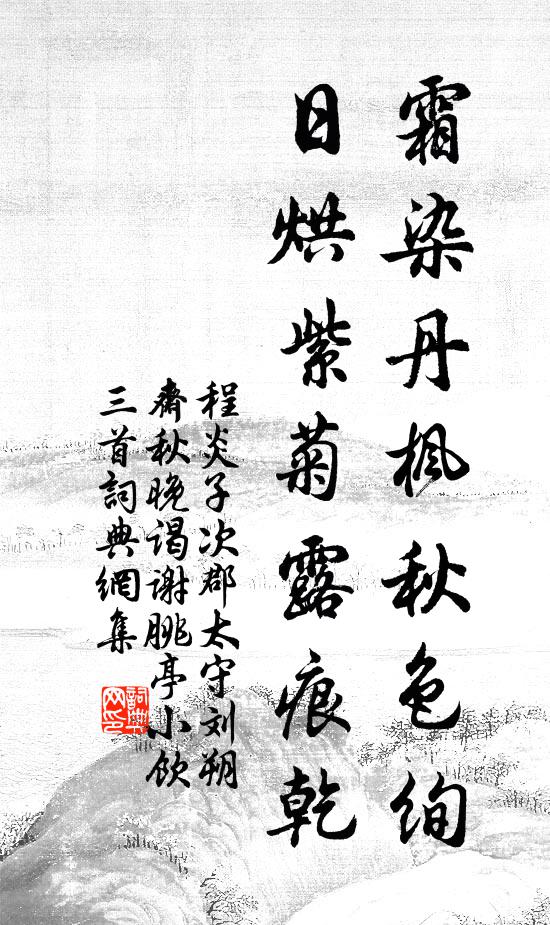 霜染丹枫秋色绚
日烘紫菊露痕乾
程炎子次郡太守刘朔
斋秋晚谒谢朓亭小饮
三首詞典網集
詞典
网印